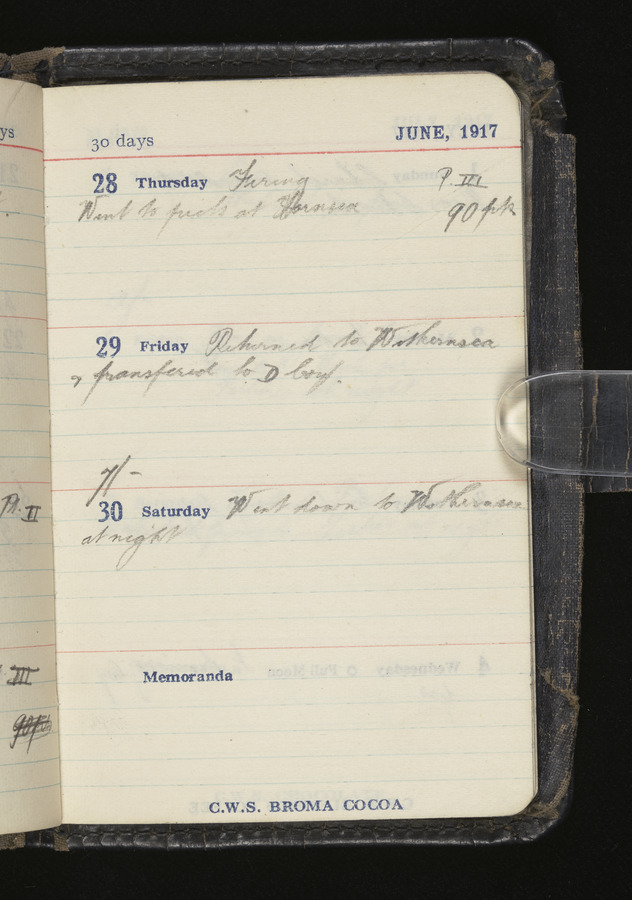 ys
30 days
JUNE, 1917
28 Thursday Firing P. III
Went to pools at Hornsea 90 pts
29 Friday Returned to Withernsea
& transfered to D Coy.
7/-
30 Saturday Went down to Withernsea
at night
Pt. II
Memoranda
III
C.W.S. BROMA COCOA